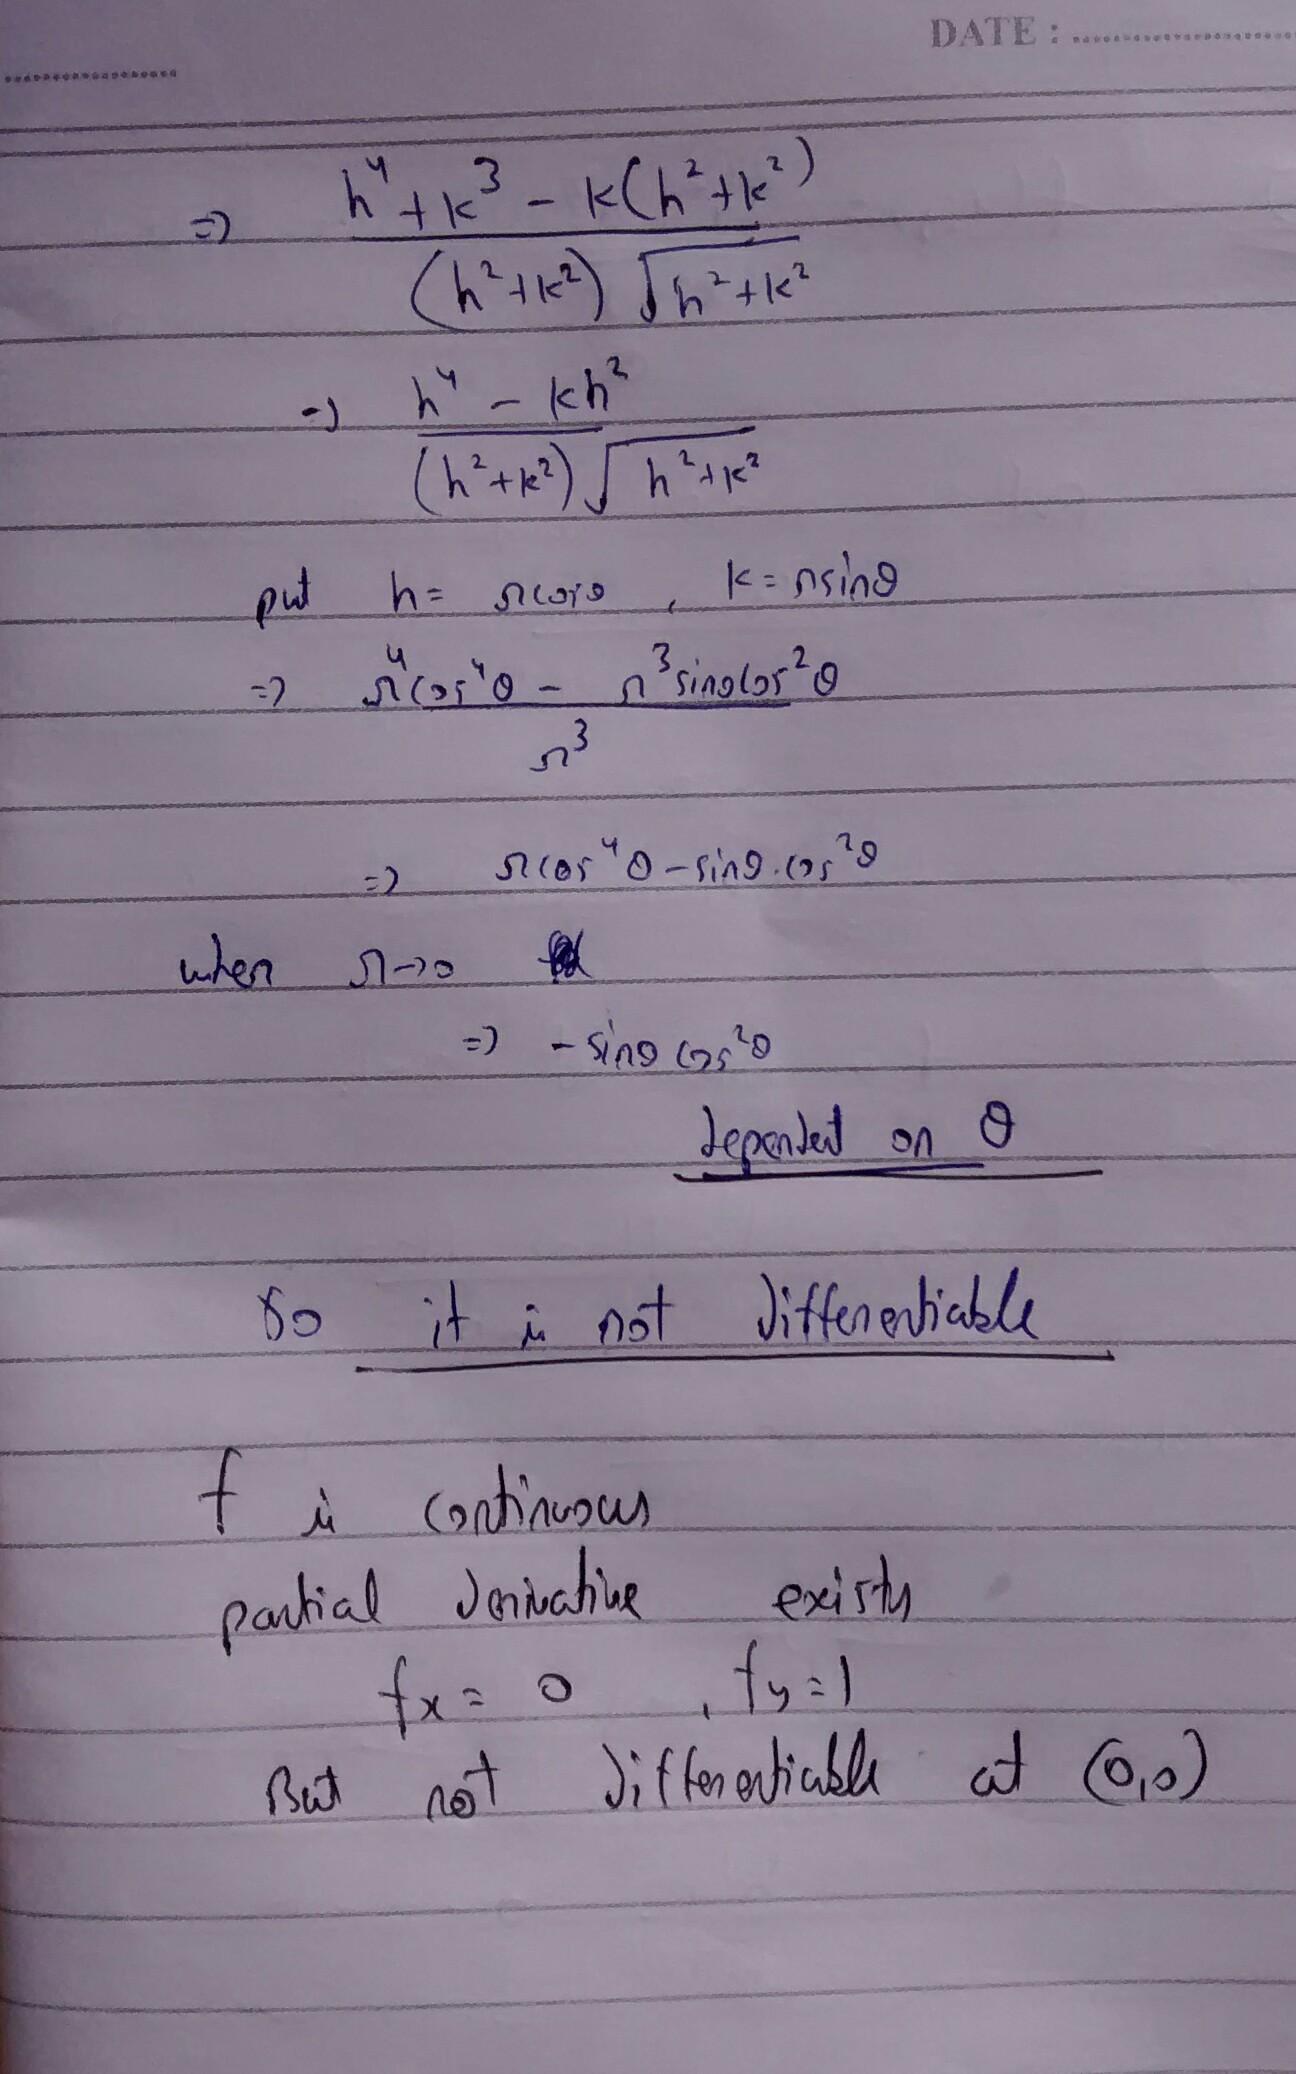 DATE : ........................
....................
=> h⁴+k³ - k(h²+k²)
(h²+k²) √h²+k²
=> h⁴ - kh²
(h²+k²) √h²+k²
put h= rcosθ , k=rsinθ
=> r⁴cos⁴θ - r³sinθcos²θ
r³
=> rcos⁴θ-sinθ.cos²θ
when r→0
=> -sinθ cos²θ
dependent on θ
So it is not differentiable
f is continuous
partial derivative exists
fx= 0 , fy=1
But not differentiable at (0,0)